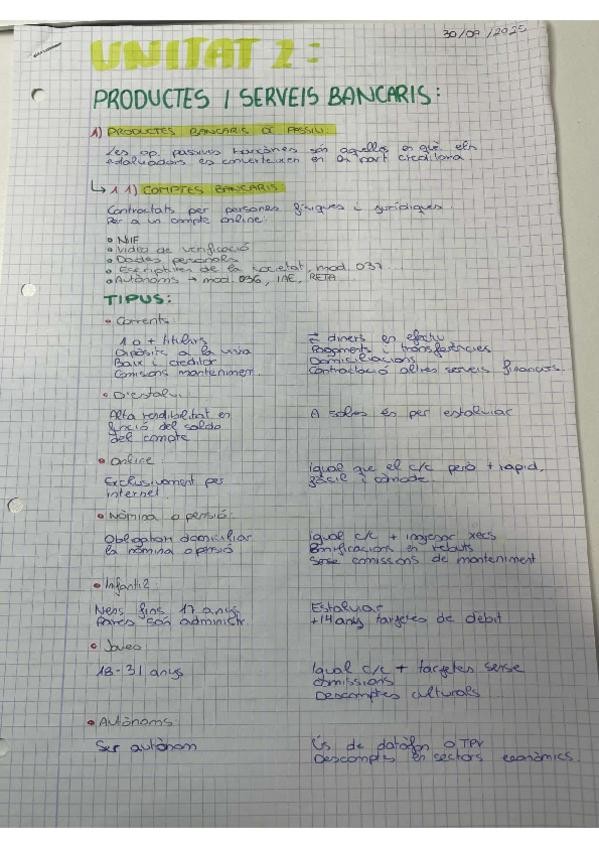 30/09/2025
UNITAT 2:
PRODUCTES I SERVEIS BANCARIS:
1) PRODUCTES BANCARIS DE PASSIU:
Les op. passives bancàries són aquelles en què els
estalviadors es converteixen en la part creditora
↳ 1.1) COMPTES BANCARIS
Contractats per persones físiques i jurídiques.
Per a un compte online:
• NIF
• Vídeo de verificació
• Dades personals
• Escriptures de la societat, mod. 037
• Autònoms → mod. 036, IAE, RETA
TIPUS:
• Corrents:
1 o + titulars
Dipòsits a la vista
Baix i creditor
Comisions mantenimen.
diners en efectiu
Pagaments i transferències
Domiciliacions
Contractació altres serveis financers.
• D'estalvi:
Alta rendibilitat en
funció del saldo
del compte
A soles és per estalviar
• Online:
Exclusivament per
internet
Igual que el c/c però + ràpid,
fàcil i còmode.
• Nòmina o pensió:
Obligation domiciliar
la nòmina o pensió
Igual c/c + ingresar xecs
Bonificacions en rebuts
Sense comissions de manteniment
• Infantil:
Nens fins 17 anys
Pares són administr.
Estalviar
+14 anys targetes de dèbit
• Joves
18-31 anys
Igual c/c + targetes sense
comissions
Descomptes culturals
• Autònoms:
Ser autònom
Ús de datàfon o TPV
Descomptes en sectors econòmics.